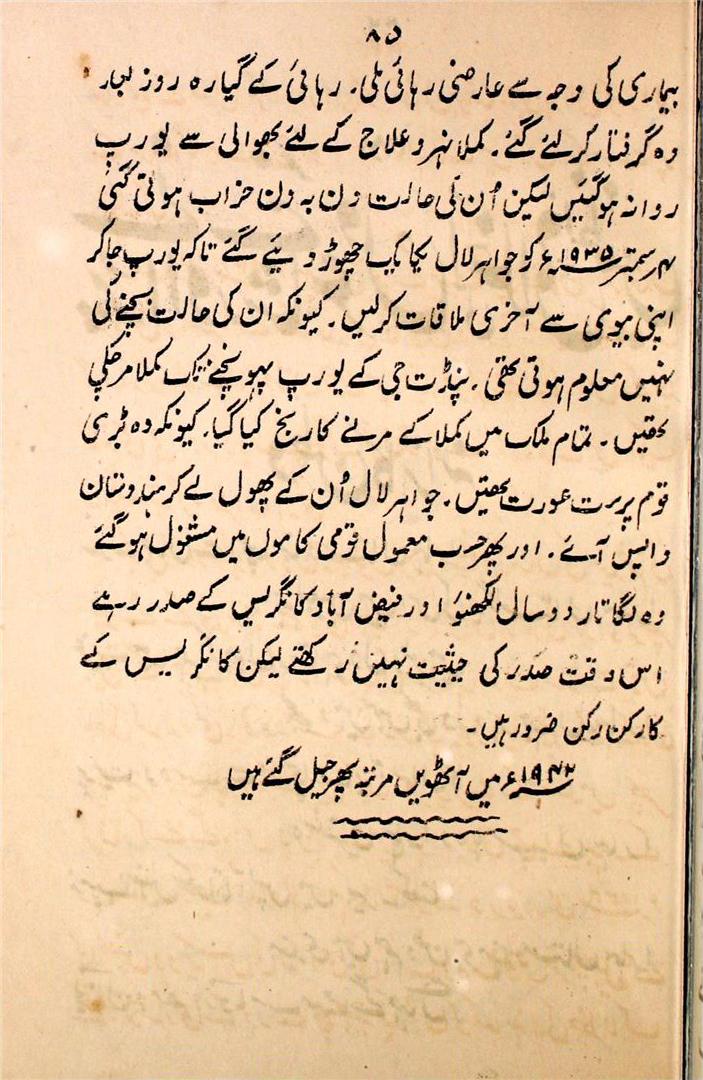 ۸۵
بیماری کی وجہ سے عارضی رہائی ملی۔ رہائی کے گیارہ روز بعد
وہ گرفتار کر لئے گئے۔ کملا نہرو علاج کے لئے بھوالی سے یورپ
روانہ ہوگئیں لیکن اُن کی حالت دن بہ دن خراب ہوتی گئی
۴ ستمبر ۱۹۳۵ء کو جواہر لال یکایک چھوڑ دیئے گئے تاکہ یورپ جا کر
اپنی بیوی سے آخری ملاقات کرلیں۔ کیونکہ ان کی حالت بچنے کی
نہیں معلوم ہوتی تھی۔ پنڈت جی کے یورپ پہونچنے تک کملا مرچکی
تھیں۔ تمام ملک میں کملا کے مرنے کا رنج کیا گیا۔ کیونکہ وہ بڑی
قوم پرست عورت تھیں۔ جواہر لال اُن کے پھول لے کر ہندوستان
واپس آئے۔ اور پھر حسب معمول قومی کاموں میں مشغول ہوگئے
وہ لگاتار دو سال لکھنؤ اور فیض آباد کانگریس کے صدر رہے
اس وقت صدر کی حیثیت نہیں رکھتے لیکن کانگریس کے
کارکن رکن ضرور ہیں۔
۱۹۴۲ء میں آٹھویں مرتبہ پھر جیل گئے ہیں